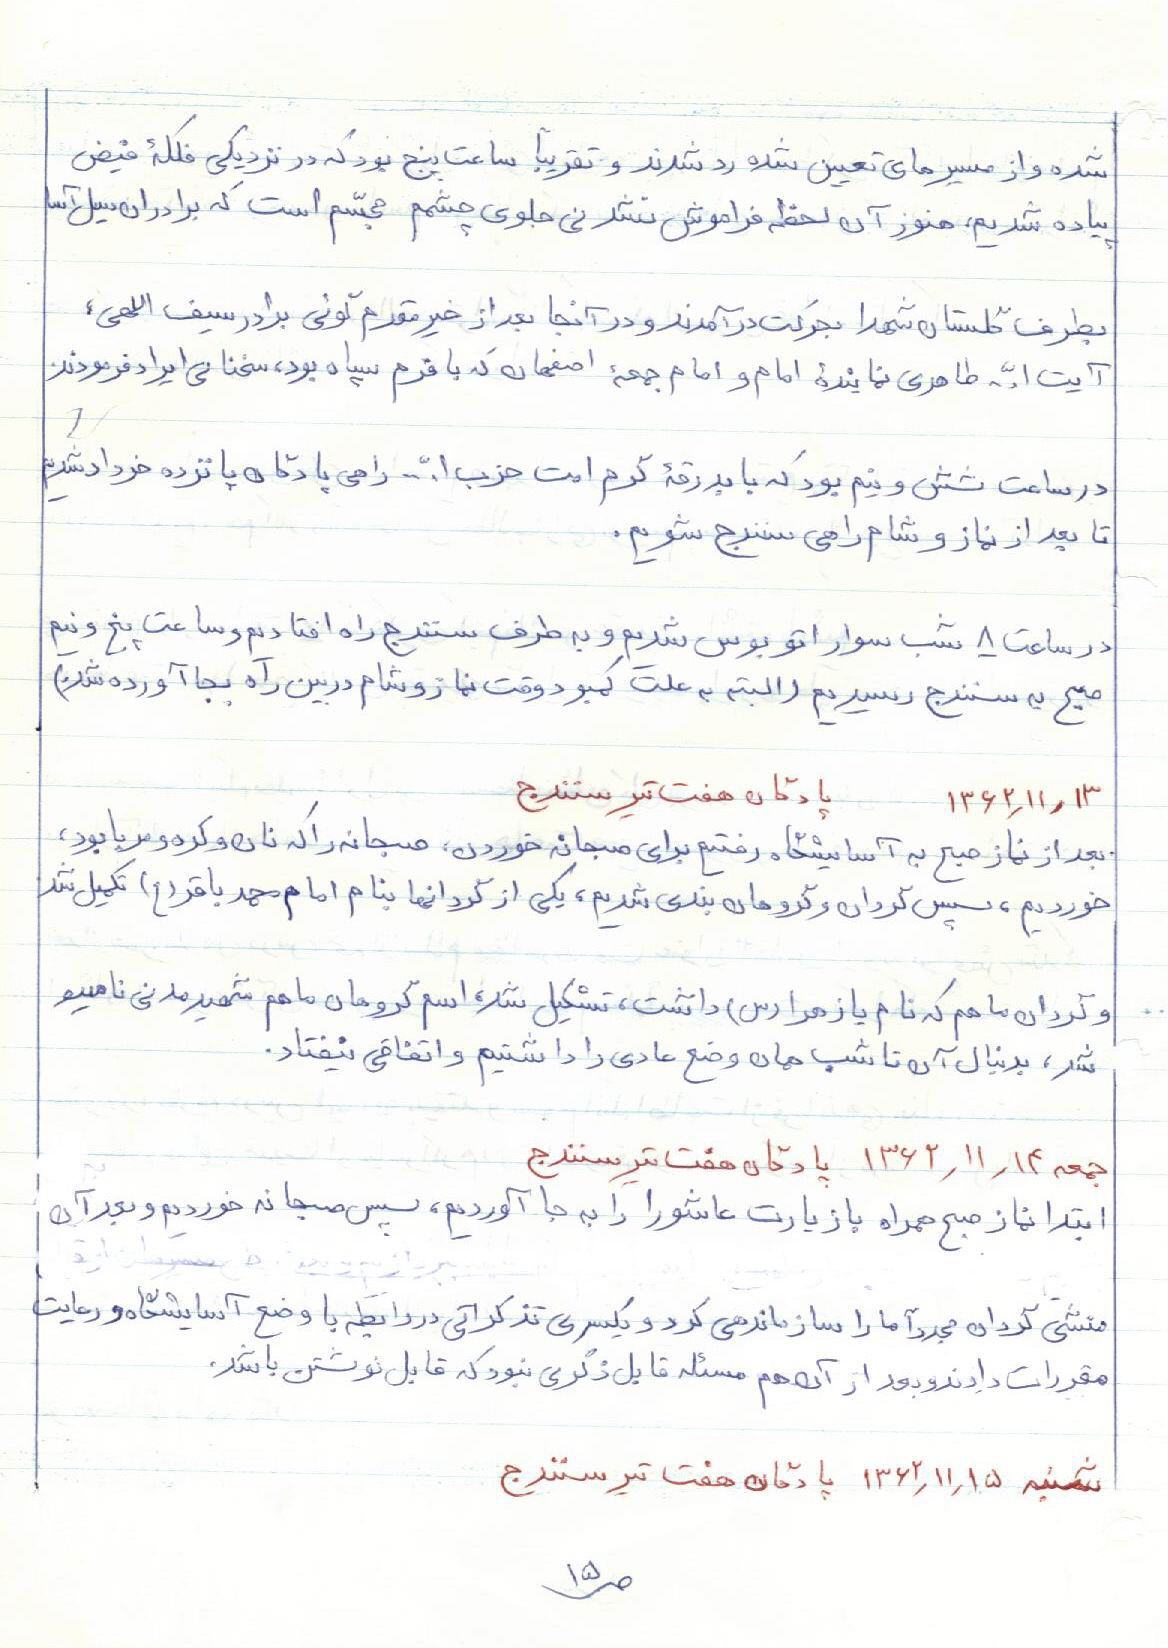 شده و از مسیرهای تعیین شده رد شدند و تقریباً ساعت پنج بود که در نزدیکی فلکهٔ فیض
پیاده شدیم، هنوز آن لحظه فراموش نشدنی جلوی چشمم مجسّم است که برادران سیل‌آسا
بطرف گلستان شهدا بحرکت درآمدند و در آنجا بعد از خیر مقدم گوئی برادر سیف اللهی،
آیت ا... طاهری نمایندهٔ امام و امام جمعهٔ اصفهان که با فرم سپاه بود، سخنانی ایراد فرمودند.
در ساعت شش و نیم بود که با بدرقهٔ گرم امت حزب ا... راهی پادگان پانزده خرداد شدیم
تا بعد از نماز و شام راهی سنندج شویم.
در ساعت ۸ شب سوار اتوبوس شدیم و به طرف سنندج راه افتادیم و ساعت پنج و نیم
صبح به سنندج رسیدیم (البته به علت کمبود وقت نماز و شام در بین راه بجا آورده شد)
۱۳ر۱۱ر۱۳۶۲ پادگان هفت تیر سنندج
بعد از نماز صبح به آسایشگاه رفتیم برای صبحانه خوردن، صبحانه را که نان و کره و مربا بود،
خوردیم، سپس گردان و گروهان بندی شدیم، یکی از گردانها بنام امام محمد باقر (ع) تکمیل شد
و گردان ما هم که نام یا زهرا (س) داشت، تشکیل شد، اسم گروهان ما هم شهید مدنی نامیده
شد، بدنبال آن تا شب همان وضع عادی را داشتیم و اتفاقی نیفتاد.
جمعه ۱۴ر۱۱ر۱۳۶۲ پادگان هفت تیر سنندج
ابتدا نماز صبح همراه با زیارت عاشورا را به جا آوردیم، سپس صبحانه خوردیم و بعد آن
منشی گردان مجدداً ما را سازماندهی کرد و یکسری تذکراتی در رابطه با وضع آسایشگاه و رعایت
مقررات دادند و بعد از آن هم مسئله قابل ذکری نبود که قابل نوشتن باشد.
شنبه ۱۵ر۱۱ر۱۳۶۲ پادگان هفت تیر سنندج
ص ۱۵